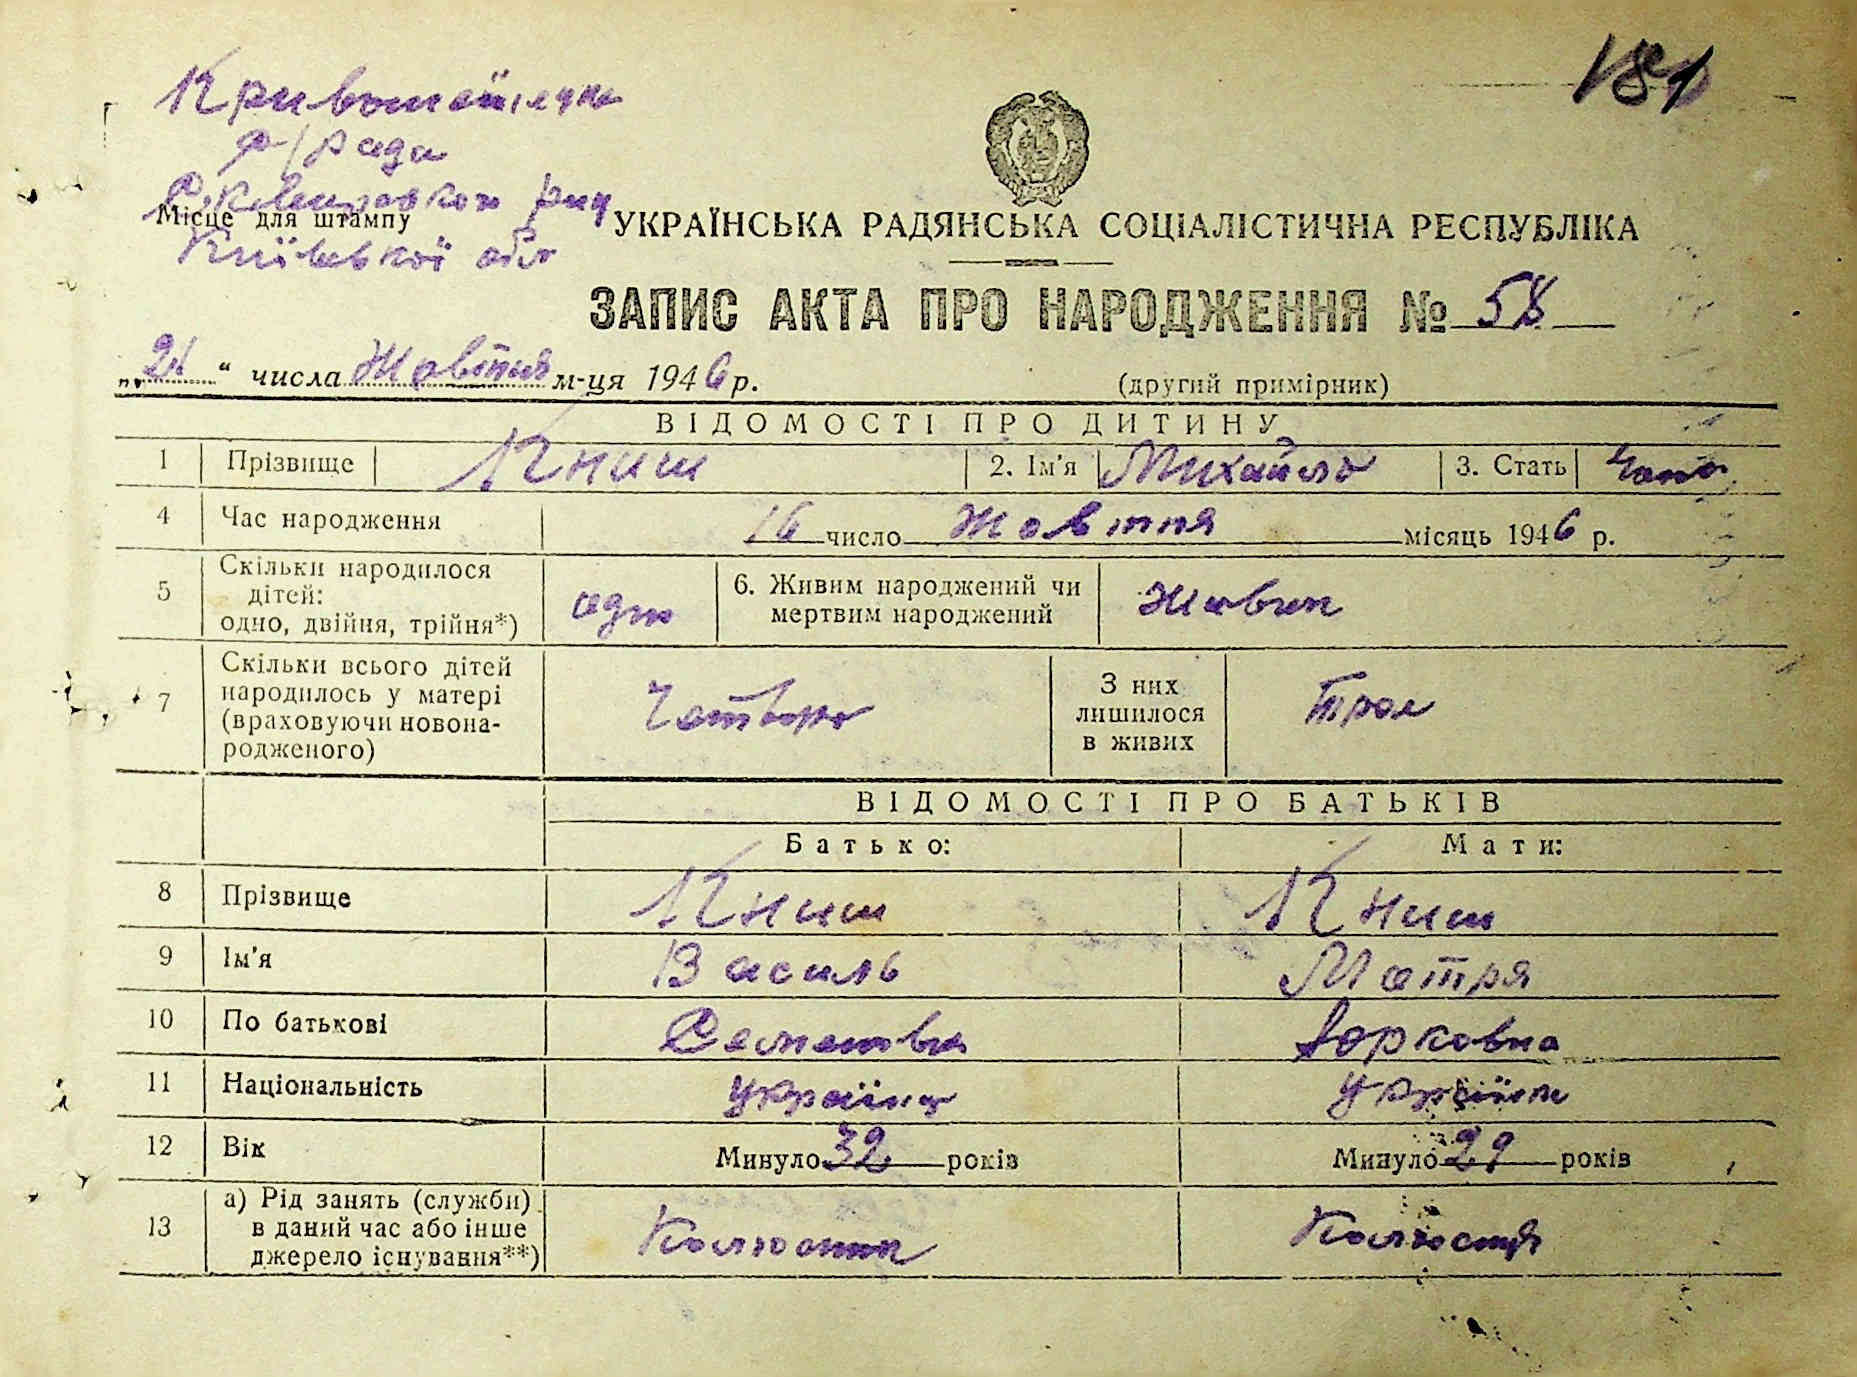 181
Кривошеїнська
с/рада
Сквирського р-ну
Місце для штампу
Київської обл
УКРАЇНСЬКА РАДЯНСЬКА СОЦІАЛІСТИЧНА РЕСПУБЛІКА
ЗАПИС АКТА ПРО НАРОДЖЕННЯ № 58
„21“ числа Жовтня м-ця 1946 р.
(другий примірник)
ВІДОМОСТІ ПРО ДИТИНУ
1 Прізвище Книш 2. Ім'я Михайло 3. Стать Чол
4 Час народження 16 число Жовтня місяць 1946 р.
5 Скільки народилося дітей: одно, двійня, трійня*) одно 6. Живим народжений чи мертвим народжений Живим
7 Скільки всього дітей народилось у матері (враховуючи новонародженого) Четверо З них лишилося в живих Троє
ВІДОМОСТІ ПРО БАТЬКІВ
Батько: Мати:
8 Прізвище Книш Книш
9 Ім'я Василь Мотря
10 По батькові Семенович Юрковна
11 Національність Українц Українк
12 Вік Минуло 32 років Минуло 29 років
13 а) Рід занять (служби) в даний час або інше джерело існування**) Колхозник Колхосниця